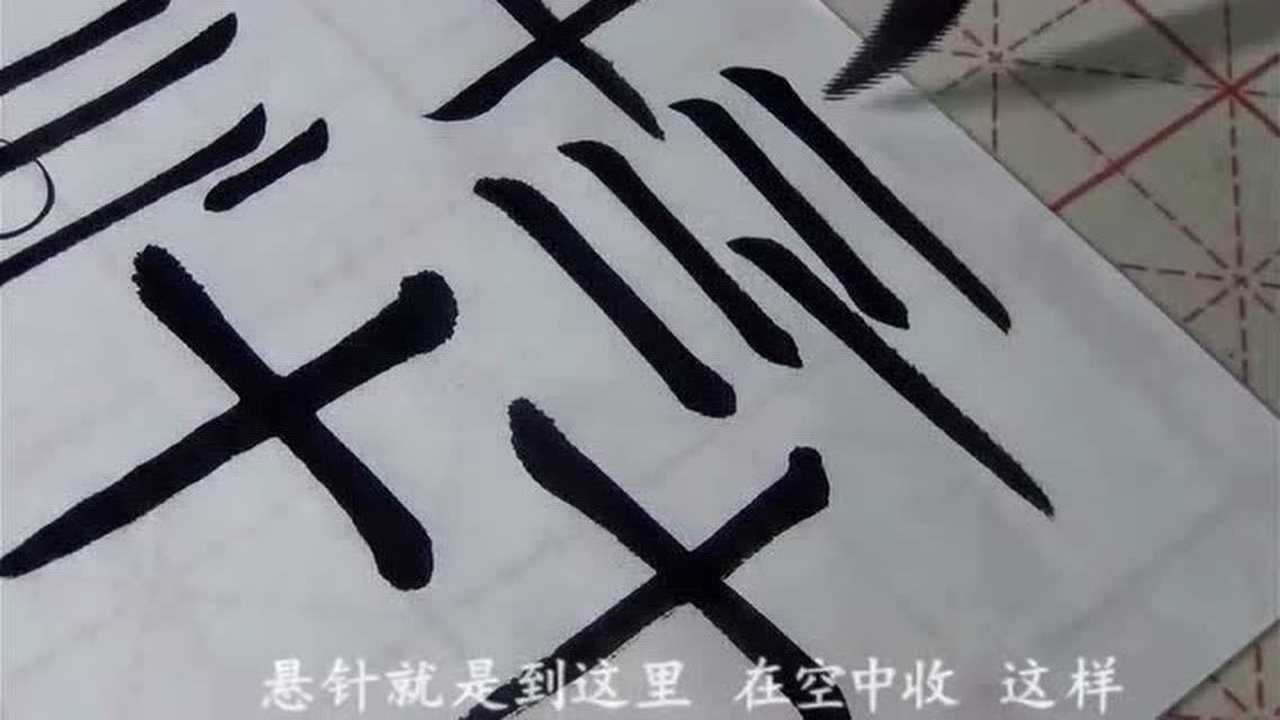 十
十
十
悬针就是到这里 在空中收 这样